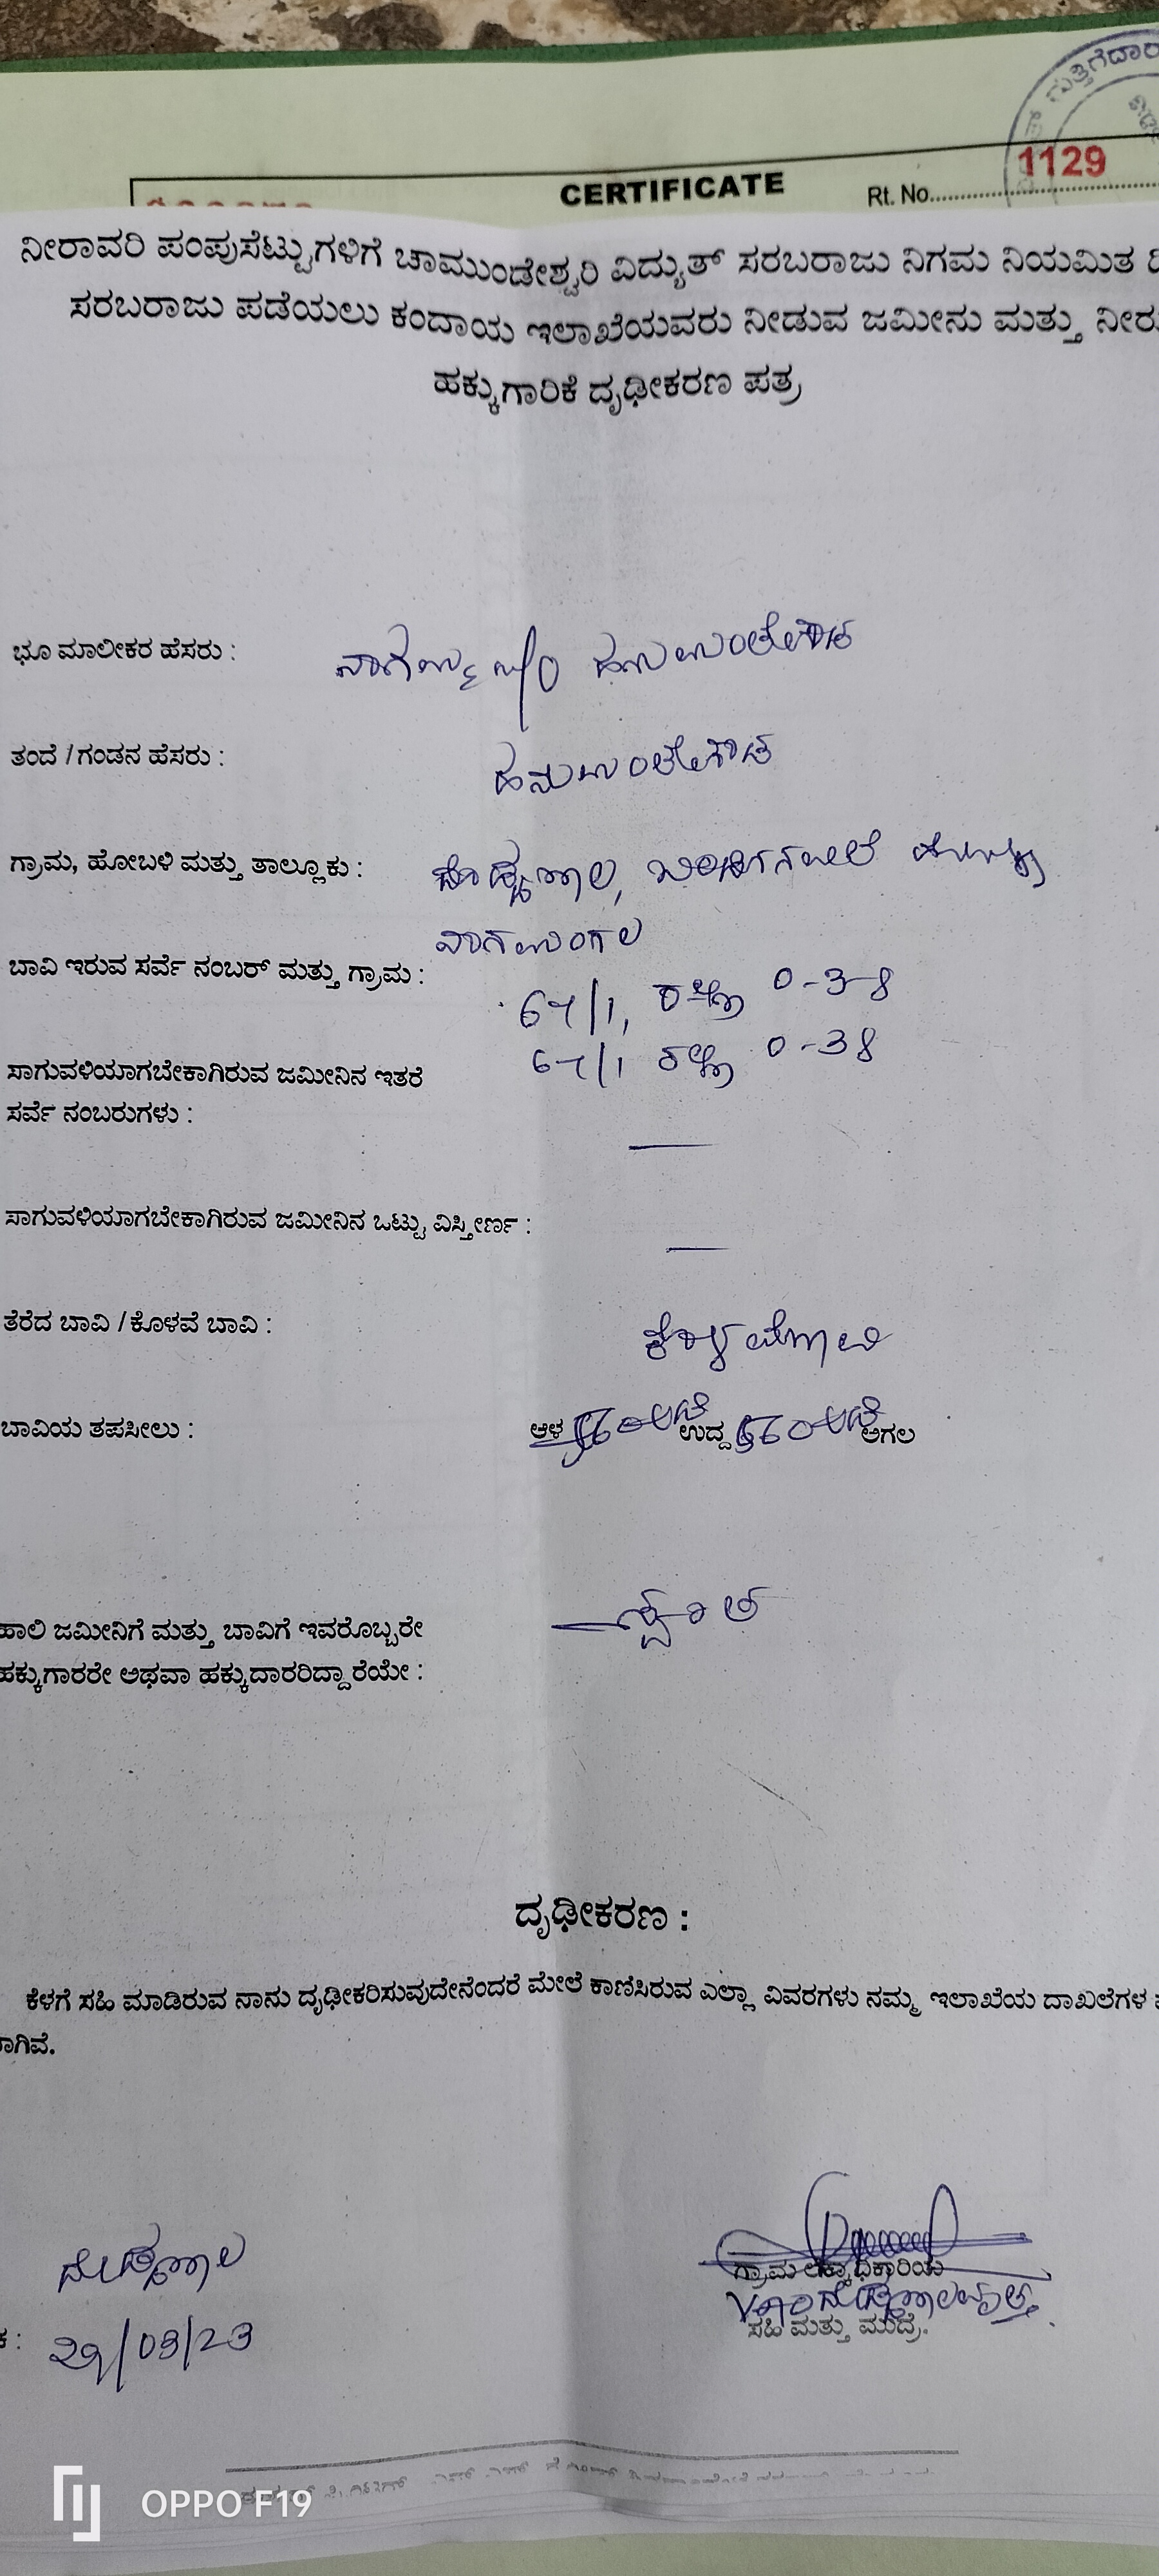 ಗುತ್ತಿಗೆದಾರ
CERTIFICATE
Rt. No. 1129
ನೀರಾವರಿ ಪಂಪುಸೆಟ್ಟುಗಳಿಗೆ ಚಾಮುಂಡೇಶ್ವರಿ ವಿದ್ಯುತ್ ಸರಬರಾಜು ನಿಗಮ ನಿಯಮಿತ
ಸರಬರಾಜು ಪಡೆಯಲು ಕಂದಾಯ ಇಲಾಖೆಯವರು ನೀಡುವ ಜಮೀನು ಮತ್ತು ನೀರು
ಹಕ್ಕುಗಾರಿಕೆ ದೃಢೀಕರಣ ಪತ್ರ
ಭೂ ಮಾಲೀಕರ ಹೆಸರು : ನಾಗಮ್ಮ ಹನುಮಂತೇಗೌಡ
ತಂದೆ /ಗಂಡನ ಹೆಸರು : ಹನುಮಂತೇಗೌಡ
ಗ್ರಾಮ, ಹೋಬಳಿ ಮತ್ತು ತಾಲ್ಲೂಕು : ಬಿಂಡಿಗನವಿಲೆ
ನಾಗಮಂಗಲ
ಬಾವಿ ಇರುವ ಸರ್ವೆ ನಂಬರ್ ಮತ್ತು ಗ್ರಾಮ : 0-3-8
ಸಾಗುವಳಿಯಾಗಬೇಕಾಗಿರುವ ಜಮೀನಿನ ಇತರೆ 0-38
ಸರ್ವೆ ನಂಬರುಗಳು :
ಸಾಗುವಳಿಯಾಗಬೇಕಾಗಿರುವ ಜಮೀನಿನ ಒಟ್ಟು ವಿಸ್ತೀರ್ಣ :
ತೆರೆದ ಬಾವಿ /ಕೊಳವೆ ಬಾವಿ : ಕೊಳವೆಬಾವಿ
ಬಾವಿಯ ತಪಸೀಲು : ಆಳ ಉದ್ದ ಅಗಲ
ಹಾಲಿ ಜಮೀನಿಗೆ ಮತ್ತು ಬಾವಿಗೆ ಇವರೊಬ್ಬರೇ
ಹಕ್ಕುಗಾರರೇ ಅಥವಾ ಹಕ್ಕುದಾರರಿದ್ದಾರೆಯೇ :
ದೃಢೀಕರಣ :
ಕೆಳಗೆ ಸಹಿ ಮಾಡಿರುವ ನಾನು ದೃಢೀಕರಿಸುವುದೇನೆಂದರೆ ಮೇಲೆ ಕಾಣಿಸಿರುವ ಎಲ್ಲಾ ವಿವರಗಳು ನಮ್ಮ ಇಲಾಖೆಯ ದಾಖಲೆಗಳ
ಾಗಿವೆ.
ಗ್ರಾಮ ಲೆಕ್ಕಾಧಿಕಾರಿಯ
29/03/23
ಸಹಿ ಮತ್ತು ಮುದ್ರೆ.
OPPO F19